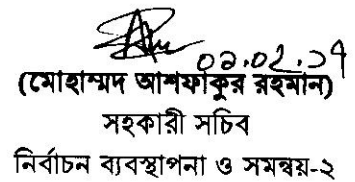 ০১.০২.১৭
(মোহাম্মদ আশফাকুর রহমান)
সহকারী সচিব
নির্বাচন ব্যবস্থাপনা ও সমন্বয়-২